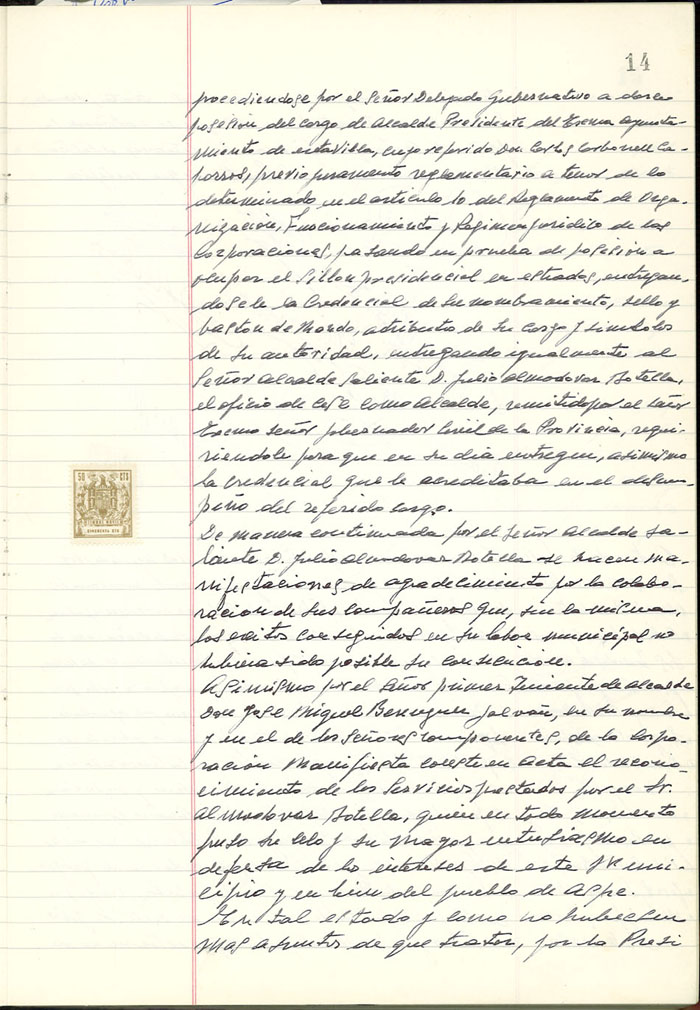 14
procediendose por el Señor Delegado Gubernativo a darle
posesion del cargo de Alcalde Presidente del Excmo Ayunta-
miento de esta villa, cuyo referido Don Carlos Carbonell Ca-
parros, previo juramento reglamentario a tenor de lo
determinado en el articulo 10 del Reglamento de Orga-
nización, Funcionamiento y Regimen juridico de las
Corporaciones, pasando en prueba de posesion a
ocupar el Sillon presidencial en estrados, entregan-
dosele la Credencial de su nombramiento, sello y
baston de Mando, atributo de su cargo y simbolos
de su autoridad, entregando igualmente al
Señor Alcalde saliente D. Julio Almodovar Botella,
el oficio de cese como Alcalde, remitido por el señor
Excmo Señor Gobernador Civil de la Provincia, requi-
riendole para que en su dia entregue, asimismo
la credencial que le acreditaba en el desem-
peño del referido cargo.
De manera continuada por el Señor Alcalde sa-
liente D. Julio Almodovar Botella se hacen ma-
nifestaciones de agradecimiento por la colabo-
racion de sus compañeros que, sin la misma,
los exitos conseguidos en su labor municipal no
hubiera sido posible su consecucion.
Asimismo por el Señor primer Teniente de Alcalde
Don José Miguel Galvañ, en su nombre
y en el de los Señores componentes, de la Corpo-
ración Manifiesta conste en acta el recono-
cimiento de los Servicios prestados por el Sr.
Almodovar Botella, quien en todo momento
puso su celo y su mayor entusiasmo en
defensa de los intereses de este Muni-
cipio y en bien del pueblo de Aspe.
En tal estado y como no hubiesen
mas asuntos de que tratar, por la Presi
50 CTS
TIMBRE MOVIL
CINCUENTA CTS